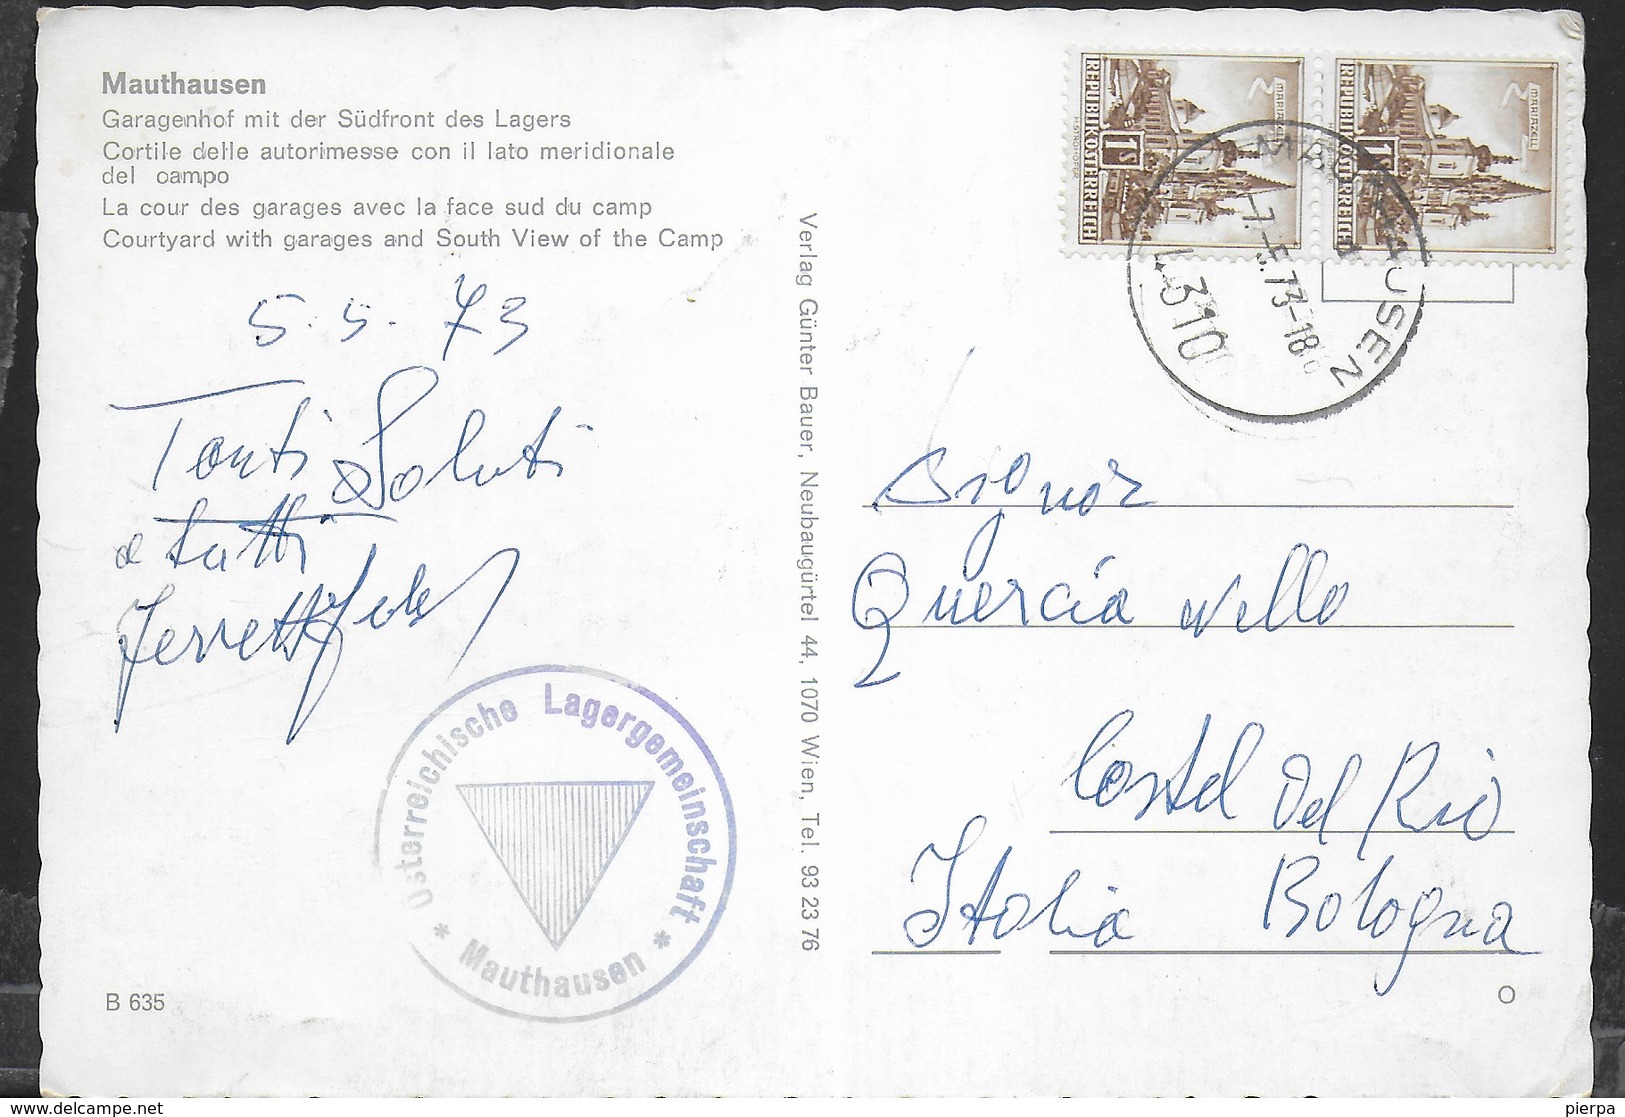 Mauthausen
Garagenhof mit der Südfront des Lagers
Cortile delle autorimesse con il lato meridionale
del campo
La cour des garages avec la face sud du camp
Courtyard with garages and South View of the Camp
5. 5. 73
Tanti Saluti
a tutti
Österreichische Lagergemeinschaft
* Mauthausen *
B 635
Verlag Günter Bauer, Neubaugürtel 44, 1070 Wien, Tel. 93 23 76
REPUBLIK ÖSTERREICH
1 S
MARIAZELL
H. STROHOFER
REPUBLIK ÖSTERREICH
1 S
MARIAZELL
MAUTHAUSEN
-7.-5.73-18
4310
Signor
Quercia Nello
Castel Del Rio
Italia Bologna
O
pierpa
delcampe.net